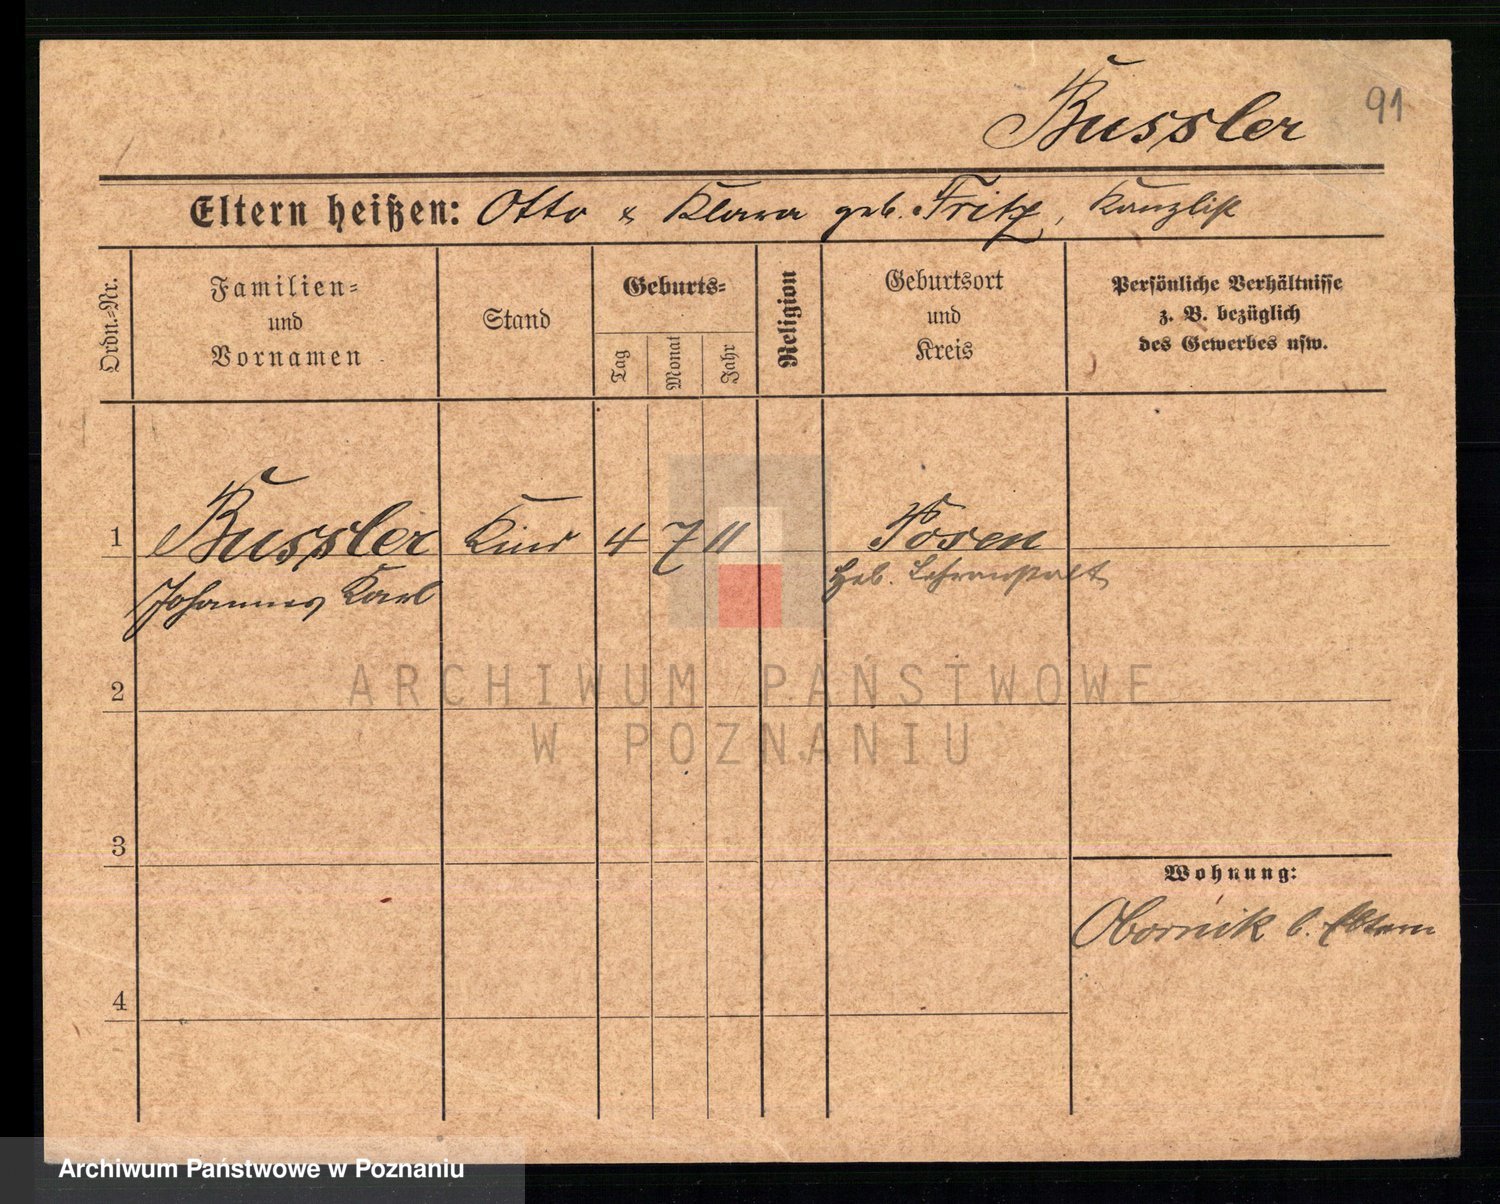 Bussler
91
Eltern heißen: Otto & Klara geb. Fritz, Kanzlist
Ordn.-Nr.
Familien-
und
Vornamen
Stand
Geburts-
Tag
Monat
Jahr
Religion
Geburtsort
und
Kreis
Persönliche Verhältnisse
z. B. bezüglich
des Gewerbes usw.
1
Bussler
Kind
4
7
11
Posen
Johannes Karl
Heb. Lehranstalt
2
ARCHIWUM PAŃSTWOWE
W POZNANIU
3
Wohnung:
Obornik b. Eltern
4
Archiwum Państwowe w Poznaniu